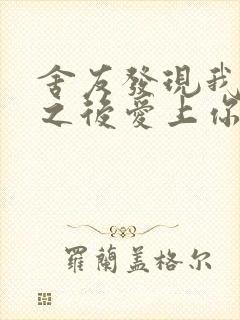 舍友發現我
之後愛上你
羅蘭蓋格尔